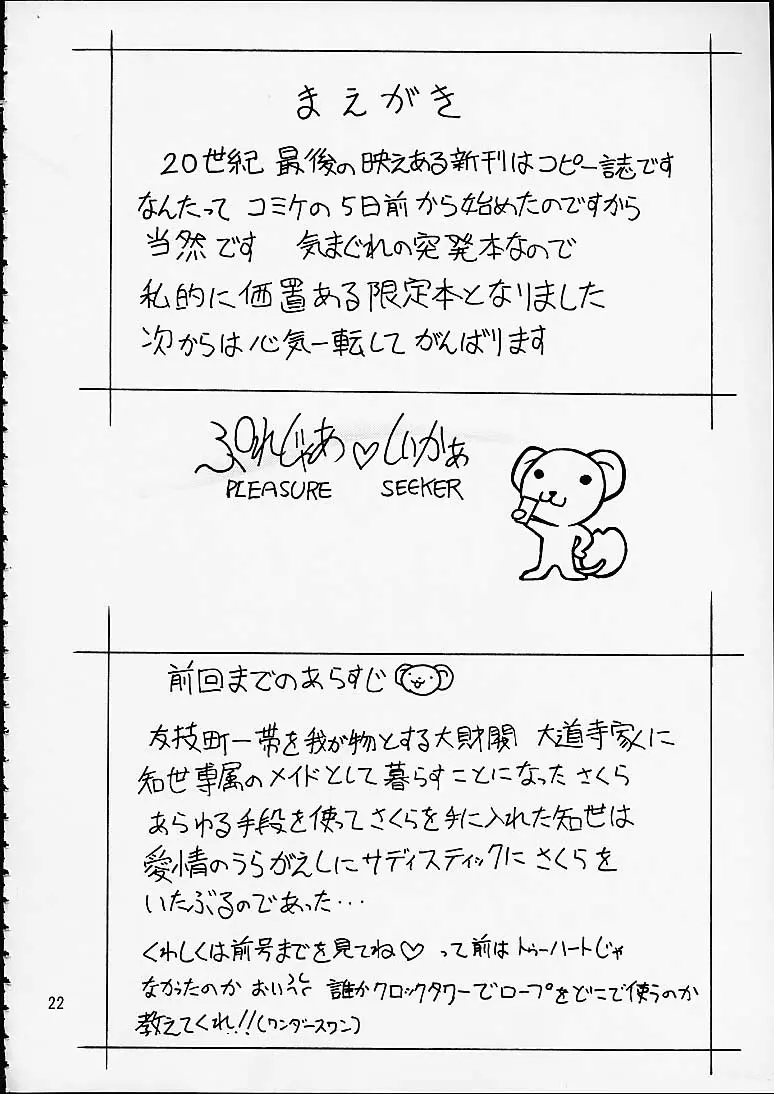 まえがき
20世紀 最後の映えある新刊はコピー誌です
なんたって コミケの5日前から始めたのですから
当然です 気まぐれの突発本なので
私的に価置ある限定本となりました
次からは心気一転して がんばります
ぷれじゃあ♡しいかぁ
PLEASURE SEEKER
前回までのあらすじ
友技町一帯を我が物とする大財閥 大道寺家に
知世専属のメイドとして暮らすことになった さくら
あらゆる手段を使って さくらを手に入れた知世は
愛情のうらがえしにサディスティックに さくらを
いたぶるのであった…
くわしくは前号までを見てね♡ って前はトゥーハートじゃ
なかったのか おいっ 誰かクロックタワーでロープをどこで使うのか
教えてくれ!!(ワンダースワン)
22